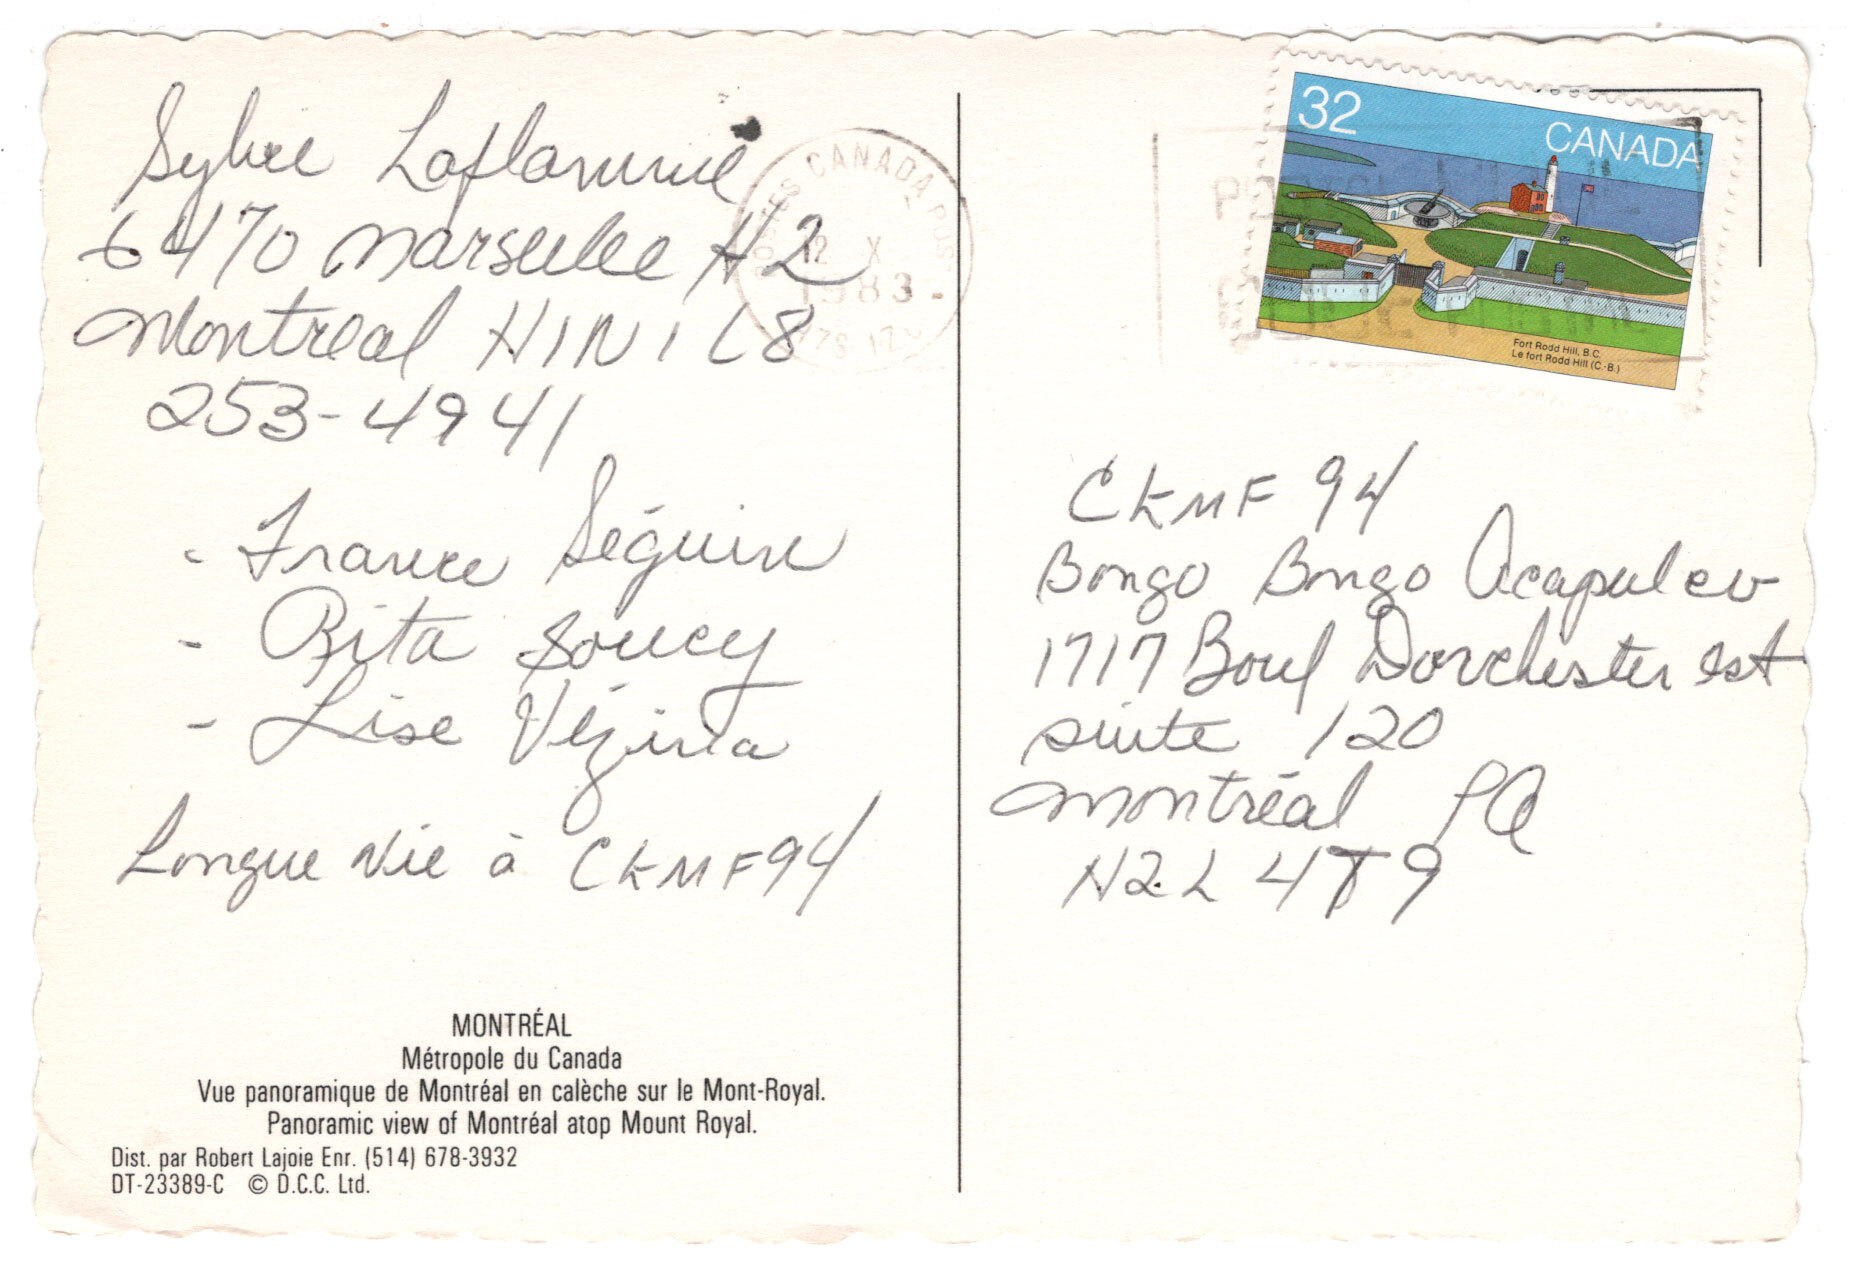 Sylvie Laflamme
6470 Marseille #2
Montreal H1N 1L8
253-4941
- France Séguin
- Rita Soucy
- Lise Vézina
Longue vie à CKMF94
MONTRÉAL
Métropole du Canada
Vue panoramique de Montréal en calèche sur le Mont-Royal.
Panoramic view of Montréal atop Mount Royal.
Dist. par Robert Lajoie Enr. (514) 678-3932
DT-23389-C © D.C.C. Ltd.
POSTES CANADA POST
12 X
1983
32 CANADA
Fort Rodd Hill, B.C.
Le fort Rodd Hill (C.-B.)
CKMF 94
Bongo Bongo Acapulco
1717 Boul Dorchester est
suite 120
Montréal PQ
H2L 4T9